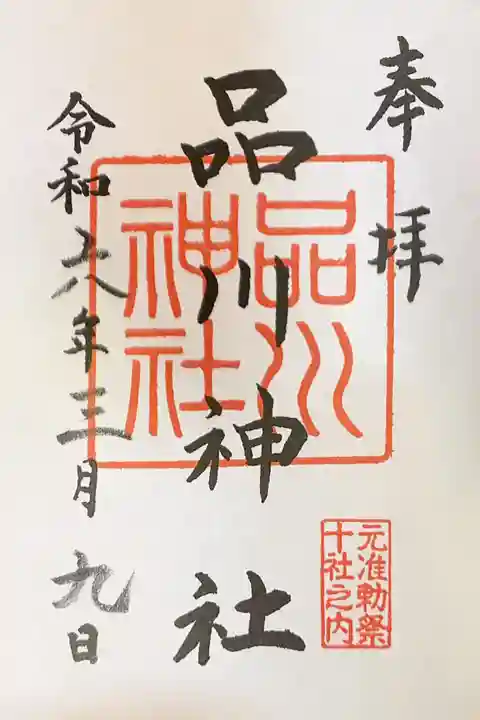 奉拝
元准勅祭
十社之内
品川神社
品川
神社
令和六年三月九日